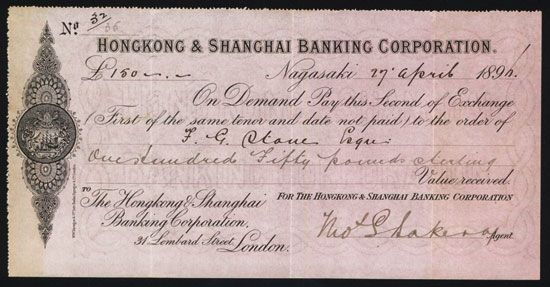 No. 32/36
HONGKONG & SHANGHAI BANKING CORPORATION.
£150-.-
Nagasaki 27 April 189
On Demand Pay this Second of Exchange
(First of the same tenor and date not paid) to the order of
F. G. Stone Esqre
One Hundred Fifty pounds sterling
Value received.
TO
The Hongkong & Shanghai
Banking Corporation,
31 Lombard Street, London.
FOR THE HONGKONG & SHANGHAI BANKING CORPORATION
Agent.